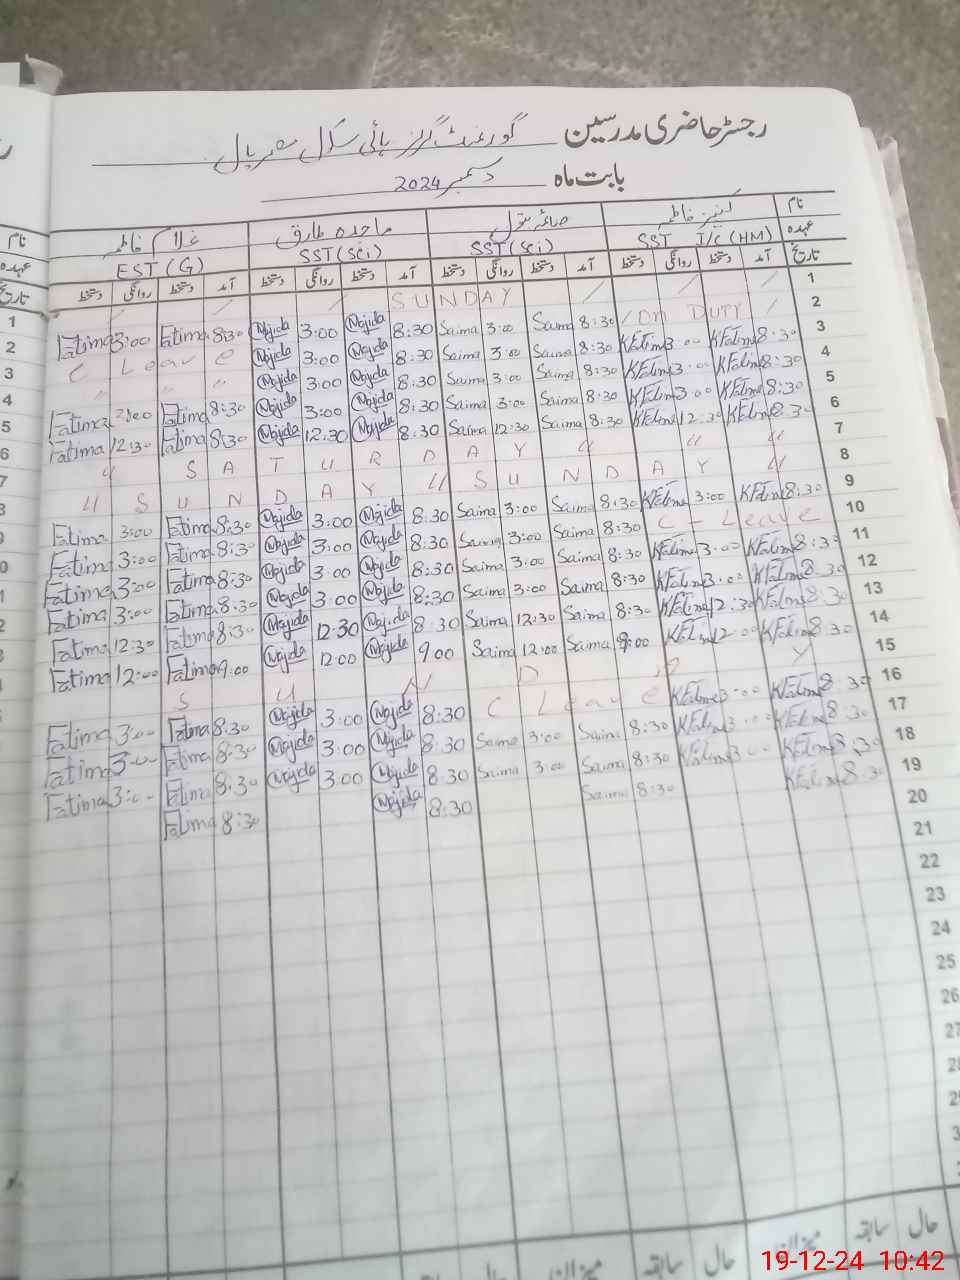 رجسٹر حاضری مدرسین گورنمنٹ گرلز ہائی سکول
بابت ماہ دسمبر 2024
نام کنیز فاطمہ صائمہ بتول ماجدہ طارق غلام فاطمہ
عہدہ SST I/c (HM) SST (Sci) SST (Sci) EST (G)
تاریخ آمد دستخط روانگی دستخط آمد دستخط روانگی دستخط آمد دستخط روانگی دستخط آمد دستخط روانگی دستخط
1 SUNDAY
2 / On Duty / Saima 8:30 Saima 3:00 Majida 8:30 Majida 3:00 Fatima 8:30 Fatima 3:00
3 KFatima 8:30 KFatima 3:00 Saima 8:30 Saima 3:00 Majida 8:30 Majida 3:00 C Leave
4 KFatima 8:30 KFatima 3:00 Saima 8:30 Saima 3:00 Majida 8:30 Majida 3:00 " " "
5 KFatima 8:30 KFatima 3:00 Saima 8:30 Saima 3:00 Majida 8:30 Majida 3:00 Fatima 8:30 Fatima 3:00
6 KFatima 8:30 KFatima 12:30 Saima 8:30 Saima 12:30 Majida 8:30 Majida 12:30 Fatima 8:30 Fatima 12:30
7 " S A T U R D A Y " " "
8 " S U N D A Y " S U N D A Y "
9 KFatima 8:30 KFatima 3:00 Saima 8:30 Saima 3:00 Majida 8:30 Majida 3:00 Fatima 8:30 Fatima 3:00
10 C - Leave Saima 8:30 Saima 3:00 Majida 8:30 Majida 3:00 Fatima 8:30 Fatima 3:00
11 KFatima 8:30 KFatima 3:00 Saima 8:30 Saima 3:00 Majida 8:30 Majida 3:00 Fatima 8:30 Fatima 3:00
12 KFatima 8:30 KFatima 3:00 Saima 8:30 Saima 3:00 Majida 8:30 Majida 3:00 Fatima 8:30 Fatima 3:00
13 KFatima 8:30 KFatima 12:30 Saima 8:30 Saima 12:30 Majida 8:30 Majida 12:30 Fatima 8:30 Fatima 12:30
14 KFatima 8:30 KFatima 12:00 Saima 9:00 Saima 12:00 Majida 9:00 Majida 12:00 Fatima 9:00 Fatima 12:00
15 S U N D A Y
16 KFatima 8:30 KFatima 3:00 C Leave Majida 8:30 Majida 3:00 Fatima 8:30 Fatima 3:00
17 KFatima 8:30 KFatima 3:00 Saima 8:30 Saima 3:00 Majida 8:30 Majida 3:00 Fatima 8:30 Fatima 3:00
18 KFatima 8:30 KFatima 3:00 Saima 8:30 Saima 3:00 Majida 8:30 Majida 3:00 Fatima 8:30 Fatima 3:00
19 KFatima 8:30 Saima 8:30 Majida 8:30 Fatima 8:30
20
21
22
23
24
25
26
27
28
حال سابقہ میزان حال سابقہ میزان حال سابقہ
19-12-24 10:42